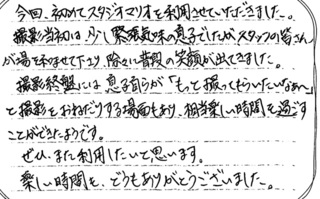 今回、初めてスタジオマリオを利用させていただきました。
撮影当初は、少し緊張気味の息子でしたがスタッフの皆さん
が場を和ませて下さり、除々に普段の笑顔が出てきました。
撮影終盤には息子自らが「もって撮ってもらいたいなぁ〜」
と撮影をおねだりする場面もあり、相当楽しい時間を過す
ことができたようです。
ぜひ、また利用したいと思います。
楽しい時間を、どうもありがとうございました。